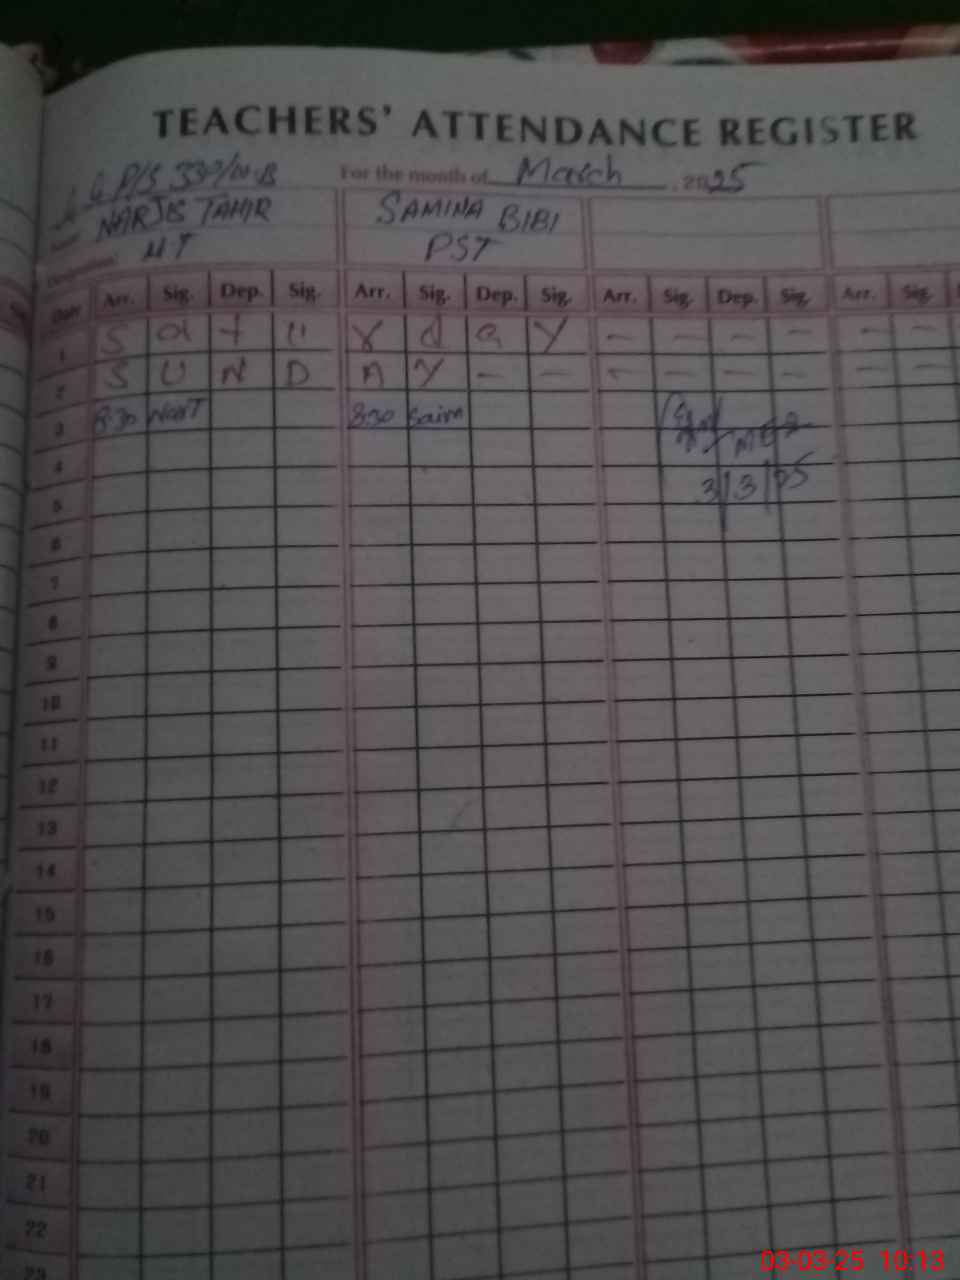 TEACHERS' ATTENDANCE REGISTER
For the month of March 2025
NARJIS TAHIR SAMINA BIBI
HT PST
Date Arr. Sig. Dep. Sig. Arr. Sig. Dep. Sig. Arr. Sig. Dep. Sig. Arr. Sig.
1 S a t u r d a y — — — — — —
2 S U N D A Y — — — — — — — —
3 8:30 8:30
4
3/3/25
5
6
7
8
9
10
11
12
13
14
15
16
17
18
19
20
21
22
23
03-03-25 10:13